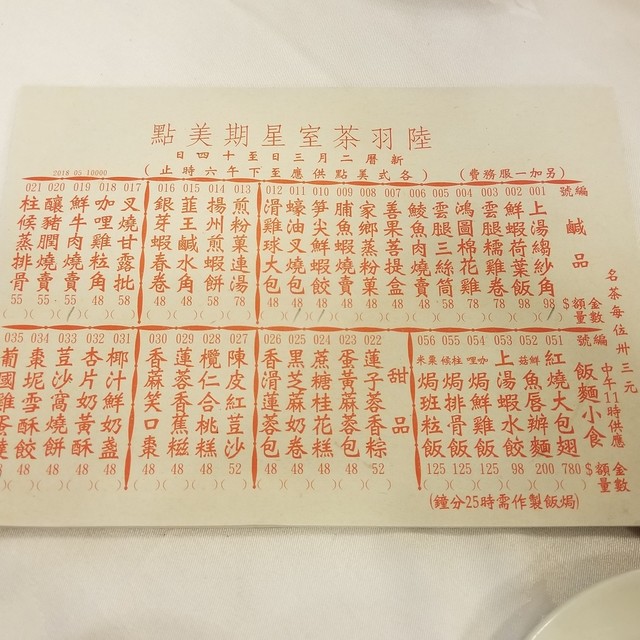 陸羽茶室星期美點
新曆二月三日至十四日
(各式美點供應至下午六時止)
(另加一服務費)
2018 05 10000
名茶每位卅三元
編號
鹹品
金額$
數量
001 上湯縐紗角 98
002 鮮蝦荷葉飯 98
003 雲腿糯雞卷 78
004 鴻圖棉花雞 78
005 雲腿三絲筒 58
006 鯪魚肉燒賣 48
007 喜果菩提盒 48
008 家鄉蒸粉菓 48
009 脯魚蝦燒賣 48
010 筍尖鮮蝦餃 48
011 蠔油叉燒包 48
012 滑雞球大包 48
013 煎粉菓連湯 78
014 揚州煎蝦餅 58
015 韮王鹹水角 48
016 銀芽蝦春卷 48
017 叉燒甘露批 58
018 咖哩雞粒角 48
019 鮮牛肉燒賣 55
020 釀豬膶燒賣 55
021 柱候蒸排骨 55
編號
飯麵小食
中午11時供應
金額$
數量
051 紅燒大包翅 780
052 鮮菇魚唇辦麵 200
053 上湯蝦水餃 98
054 咖哩焗鮮雞飯 125
055 柱候焗排骨飯 125
056 粟米焗班粒飯 125
(焗飯製作需時25分鐘)
甜品
022 蓮子蓉香粽 52
023 蛋黃蔴蓉包 48
024 蔗糖桂花糕 48
025 黑芝蔴奶卷 48
026 香滑蓮蓉包 48
027 陳皮紅荳沙 52
028 欖仁合桃糕 48
029 蓮蓉香蕉糍 48
030 香蔴笑口棗 48
031 椰汁鮮奶盞 48
032 杏片奶黃酥 48
033 荳沙窩燒餅 48
034 棗坭雪酥餃 48
035 葡國雞蛋撻 48